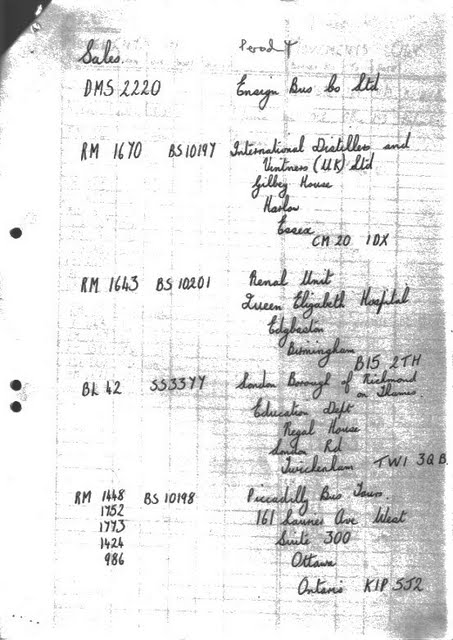 Sales. Period 7
DMS 2220 Ensign Bus Co Ltd
RM 1670 BS 10197 International Distillers and
Vintners (UK) Ltd
Gilbey House
Harlow
Essex
CM20 1DX
RM 1643 BS 10201 Renal Unit
Queen Elizabeth Hospital
Edgbaston
Birmingham
B15 2TH
BL 42 SS3377 London Borough of Richmond
on Thames
Education Dept
Regal House
London Rd
Twickenham TW1 3QB
RM 1448 BS 10198 Piccadilly Bus Tours.
1752 161 Laurier Ave West
1773 Suite 300
1424 Ottawa
986 Ontario K1P 5J2